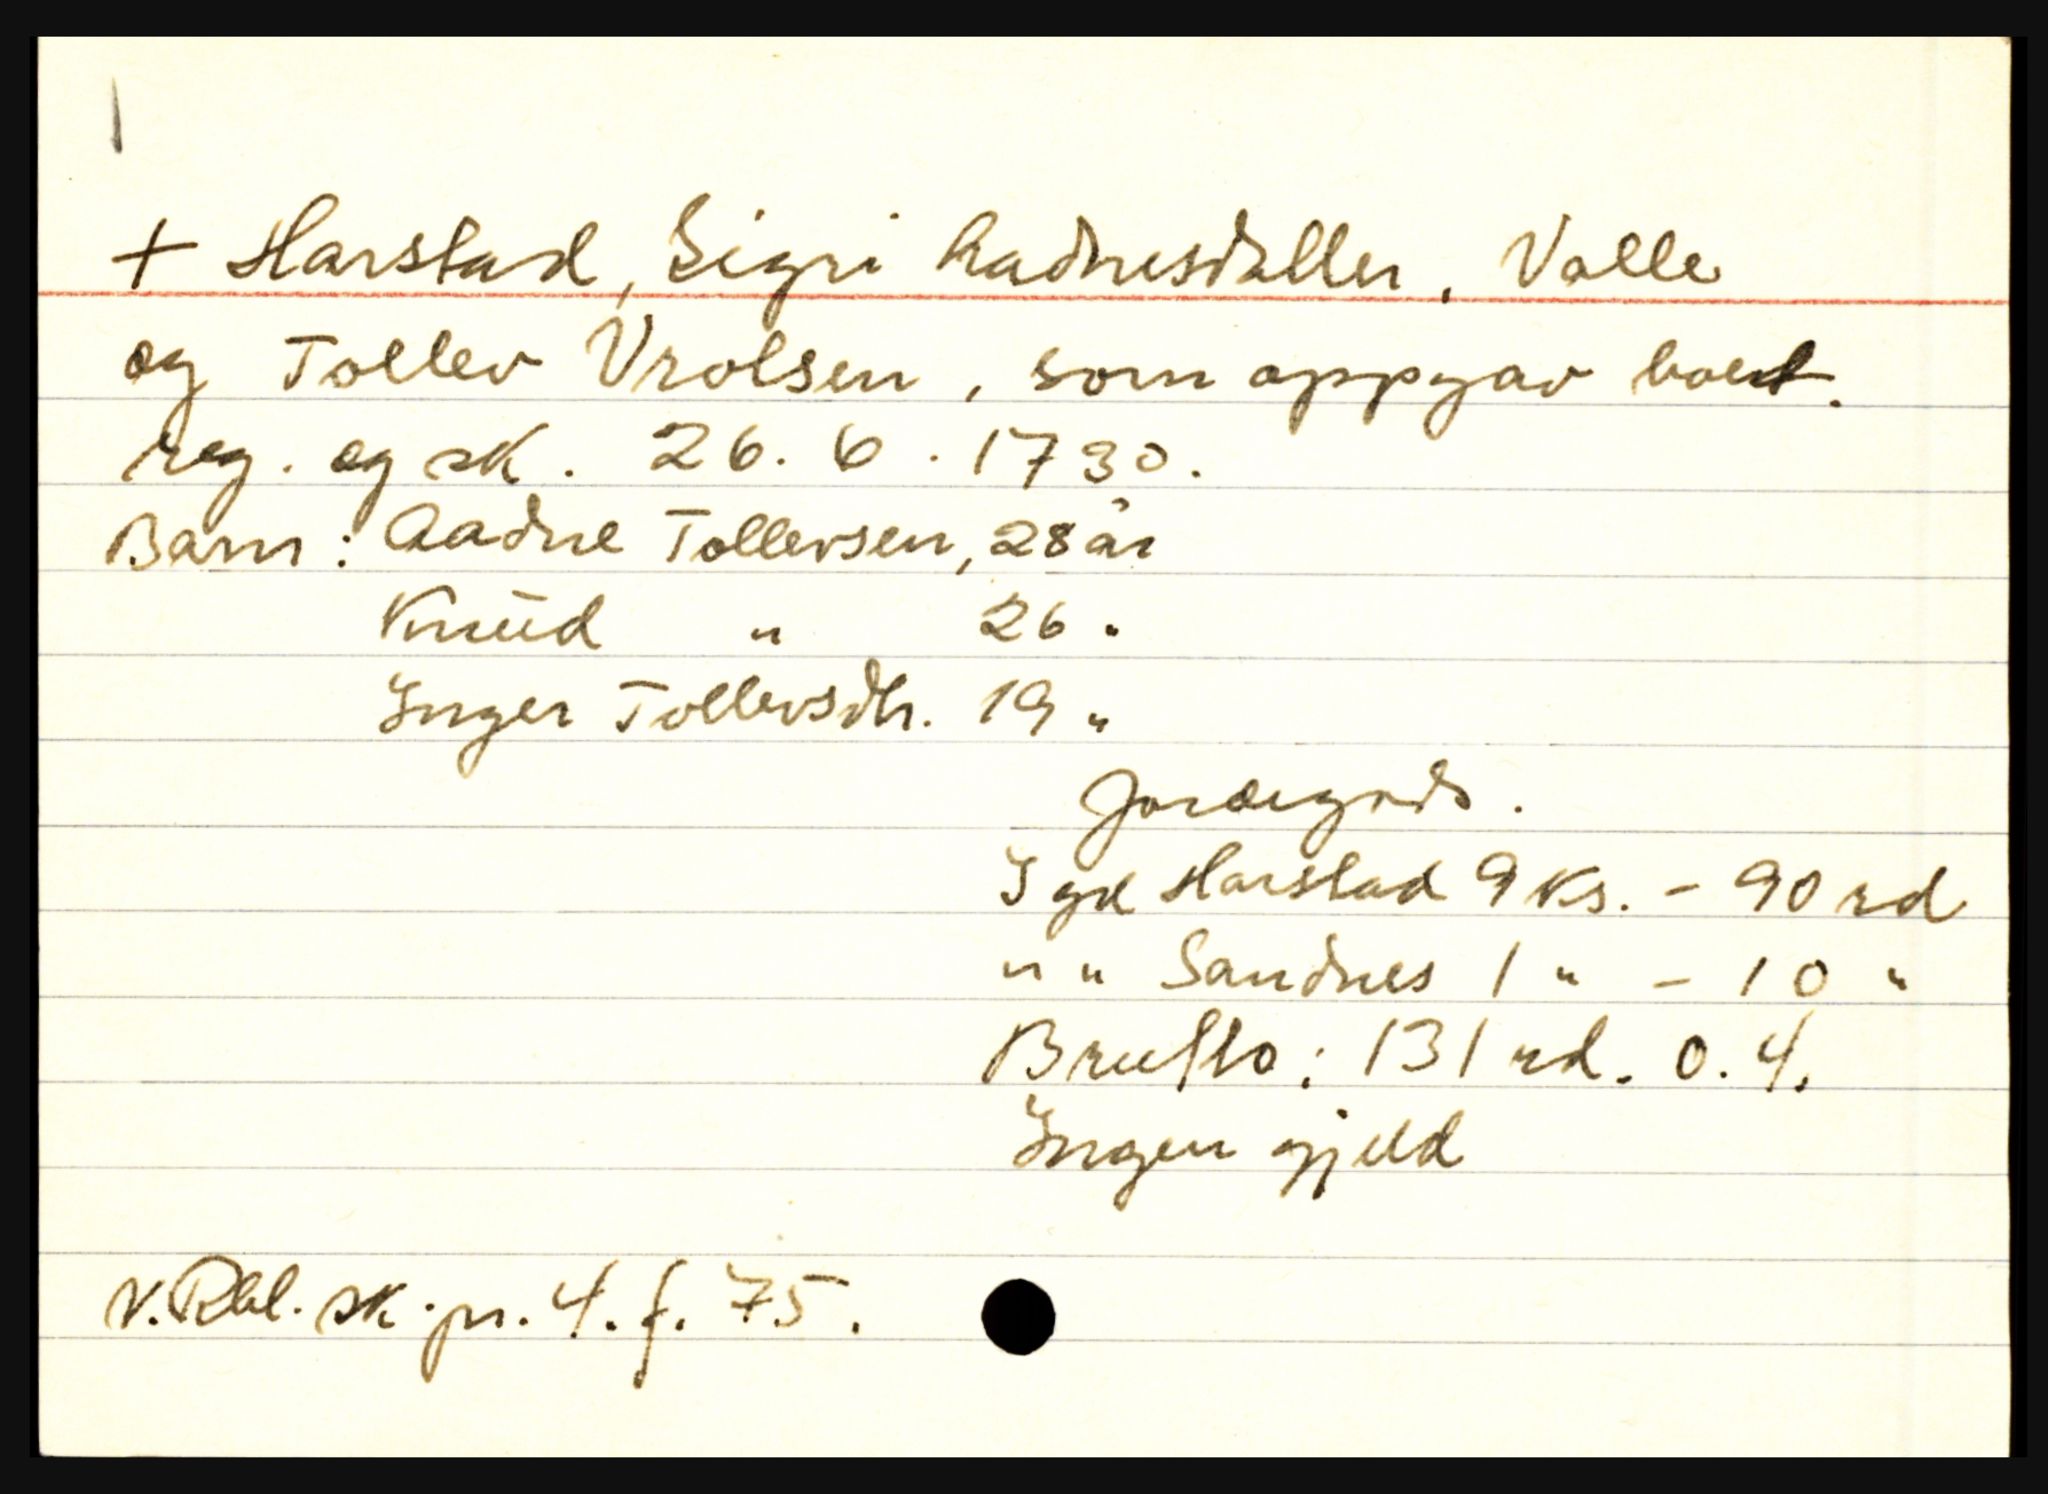 + Harstad, Sigri Aadnesdatter, Valle
og Tollev Vrolsen, som oppgav boet.
reg. og sk. 26. 6. 1730.
Barn: Aadne Tollevsen, 28 år
Knud " 26 "
Inger Tollevsdtr. 19 "
Jordegods.
I gd Harstad 9 ks. - 90 rd
" " Sandnes 1 " - 10 "
Brutto: 131 rd. 0. 4.
Ingen gjeld
V. Rbl. sk. pr. 4. f. 75.